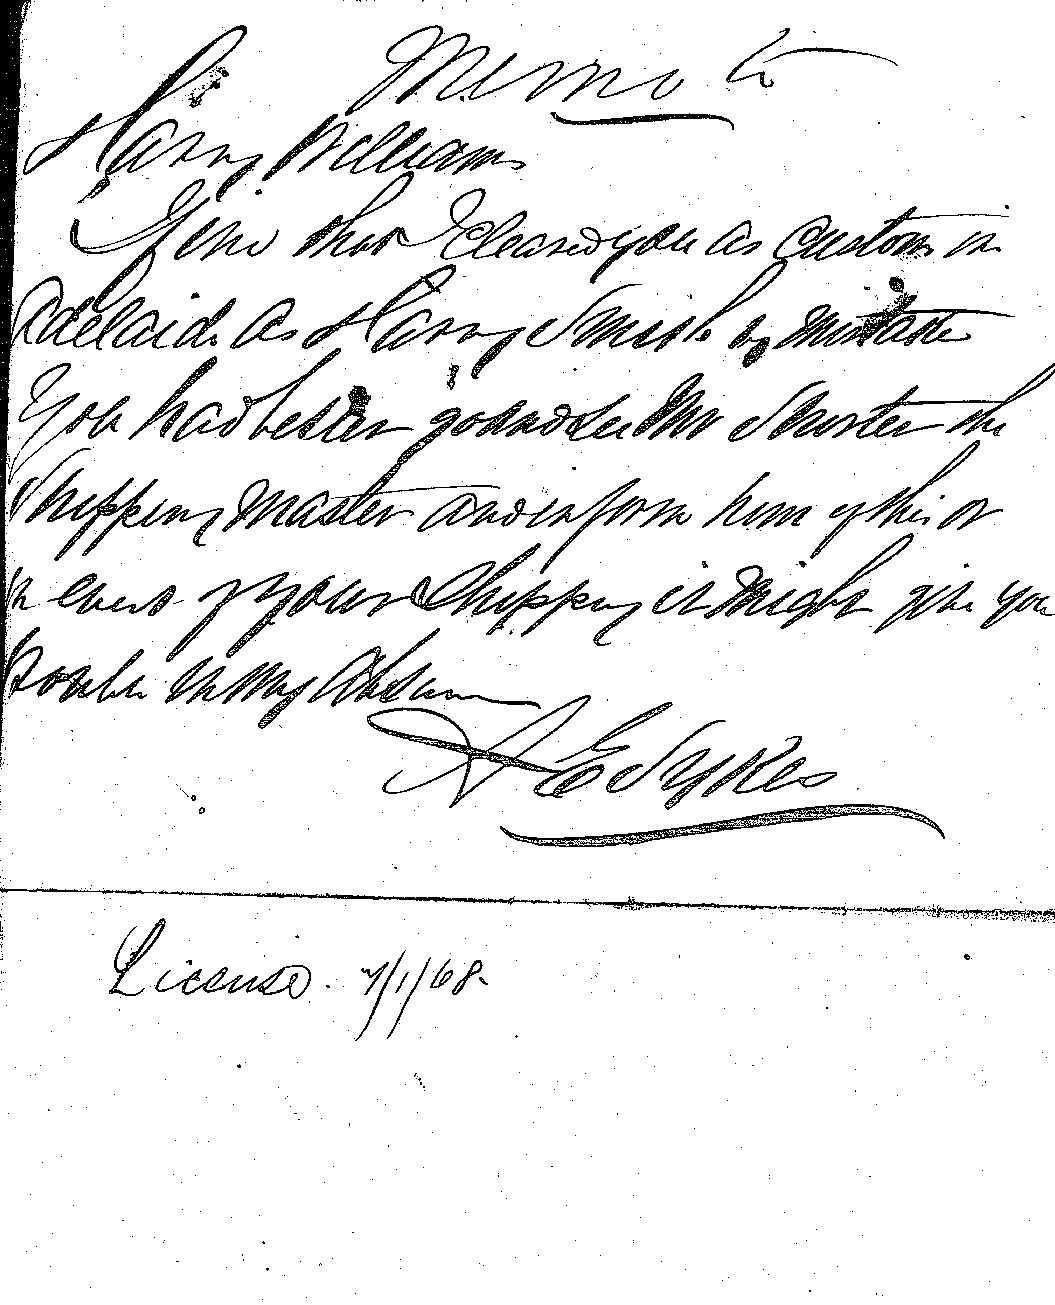 Memo to
Harry Williams
I find that I cleared you as custom in
Adelaide as Harry Smith by mistake
You had better go and see Mr Shuster the
Shipping Master and inform him of this or
in event of your Shipping it might give you
trouble in my absence
A E Sykes
License. 7/1/68.